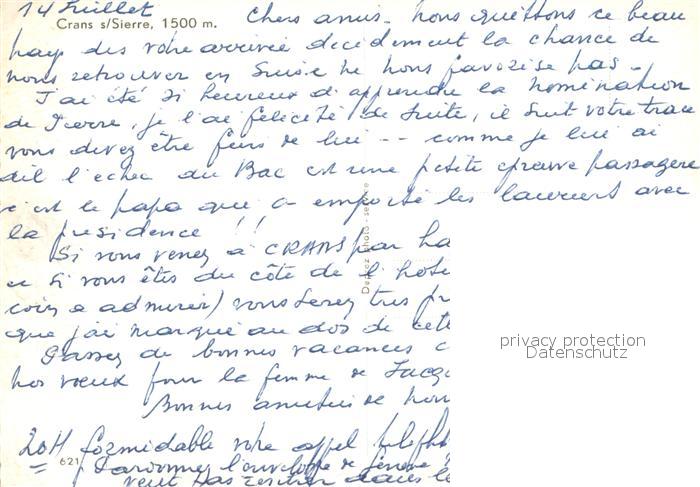 14 Juillet
Crans s/Sierre, 1500 m.
Chers amis. nous quittons ce beau
pays dès votre arrivée décidement la chance de
nous retrouver en Suisse ne nous favorise pas -
J'ai été si heureux d'apprendre la nomination
de Pierre, je l'ai félicité de suite, il suit votre trace
vous devez être fiers de lui -- comme je lui ai
dit l'echec du Bac est une petite épreuve passagère
c'est le papa qui a emporté les lauriers avec
la presidence !!
Si vous venez à CRANS par ha
et si vous êtes du côté de l'hote
coin a admirer) vous serez tres
que j'ai marqué au dos de cett
Passez de bonnes vacances
nos vœux pour la femme de Jacq
Bonnes amitiés de nou
Deprez photo - service
privacy protection
Datenschutz
20H formidable votre appel téléph
621
Pardonnez l'enveloppe de Genève
veut pas rentrer dans le